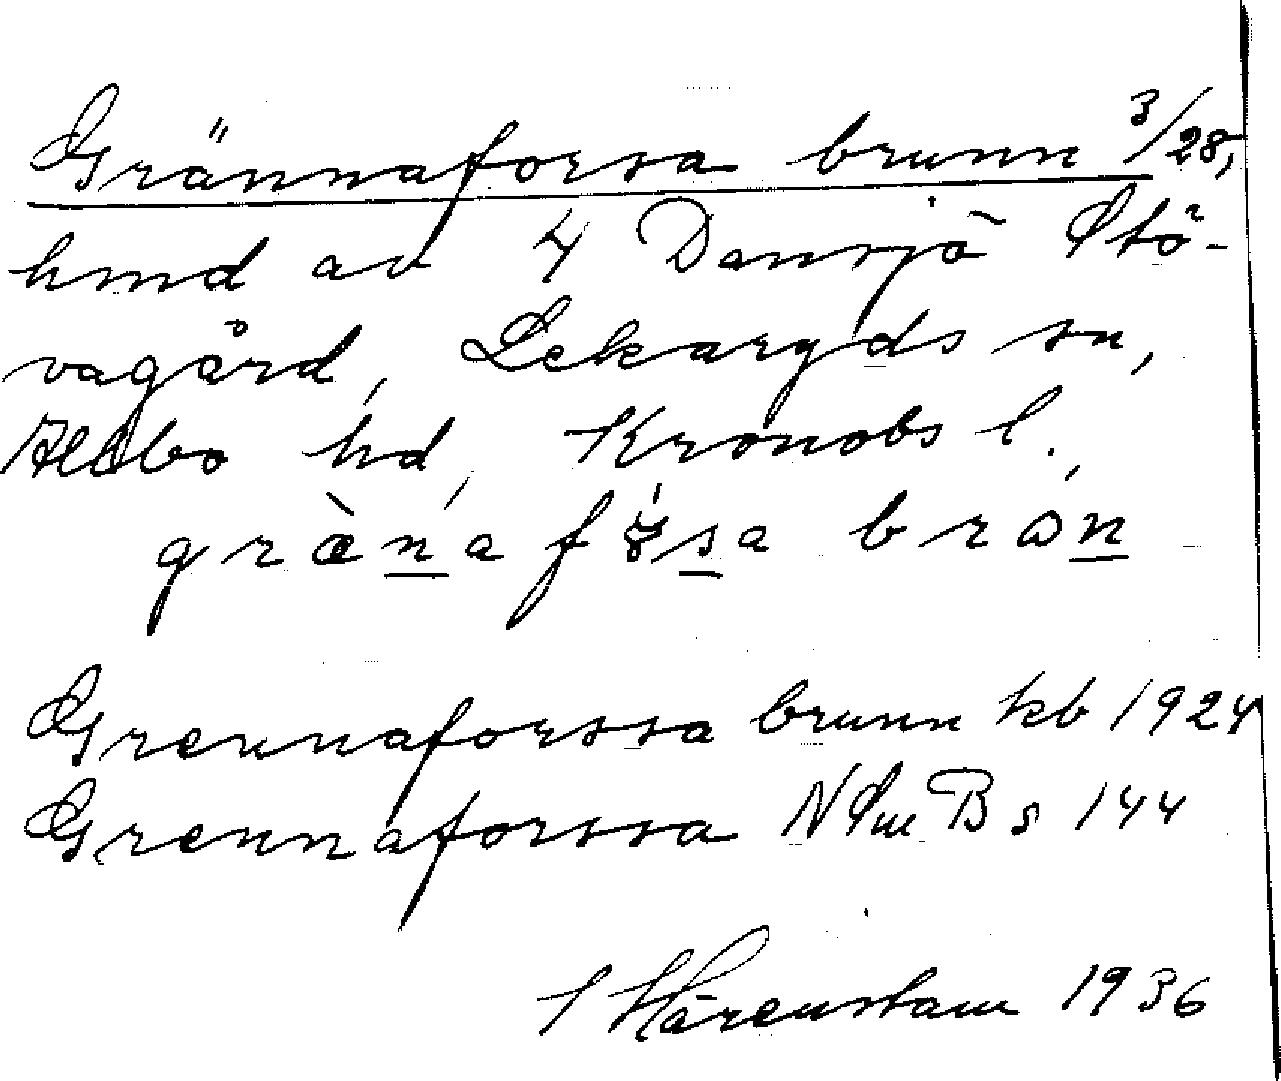 Grännaforsa brunn 3/28,
hmd av 4 Dansjö Stö-
vagård, Lekaryds sn,
Allbo hd, Kronobs l.,
græ̀na f sa brɷn
Grennaforssa brunn kb 1924
Grennaforssa NSmB s 144
I Härenstam 1936